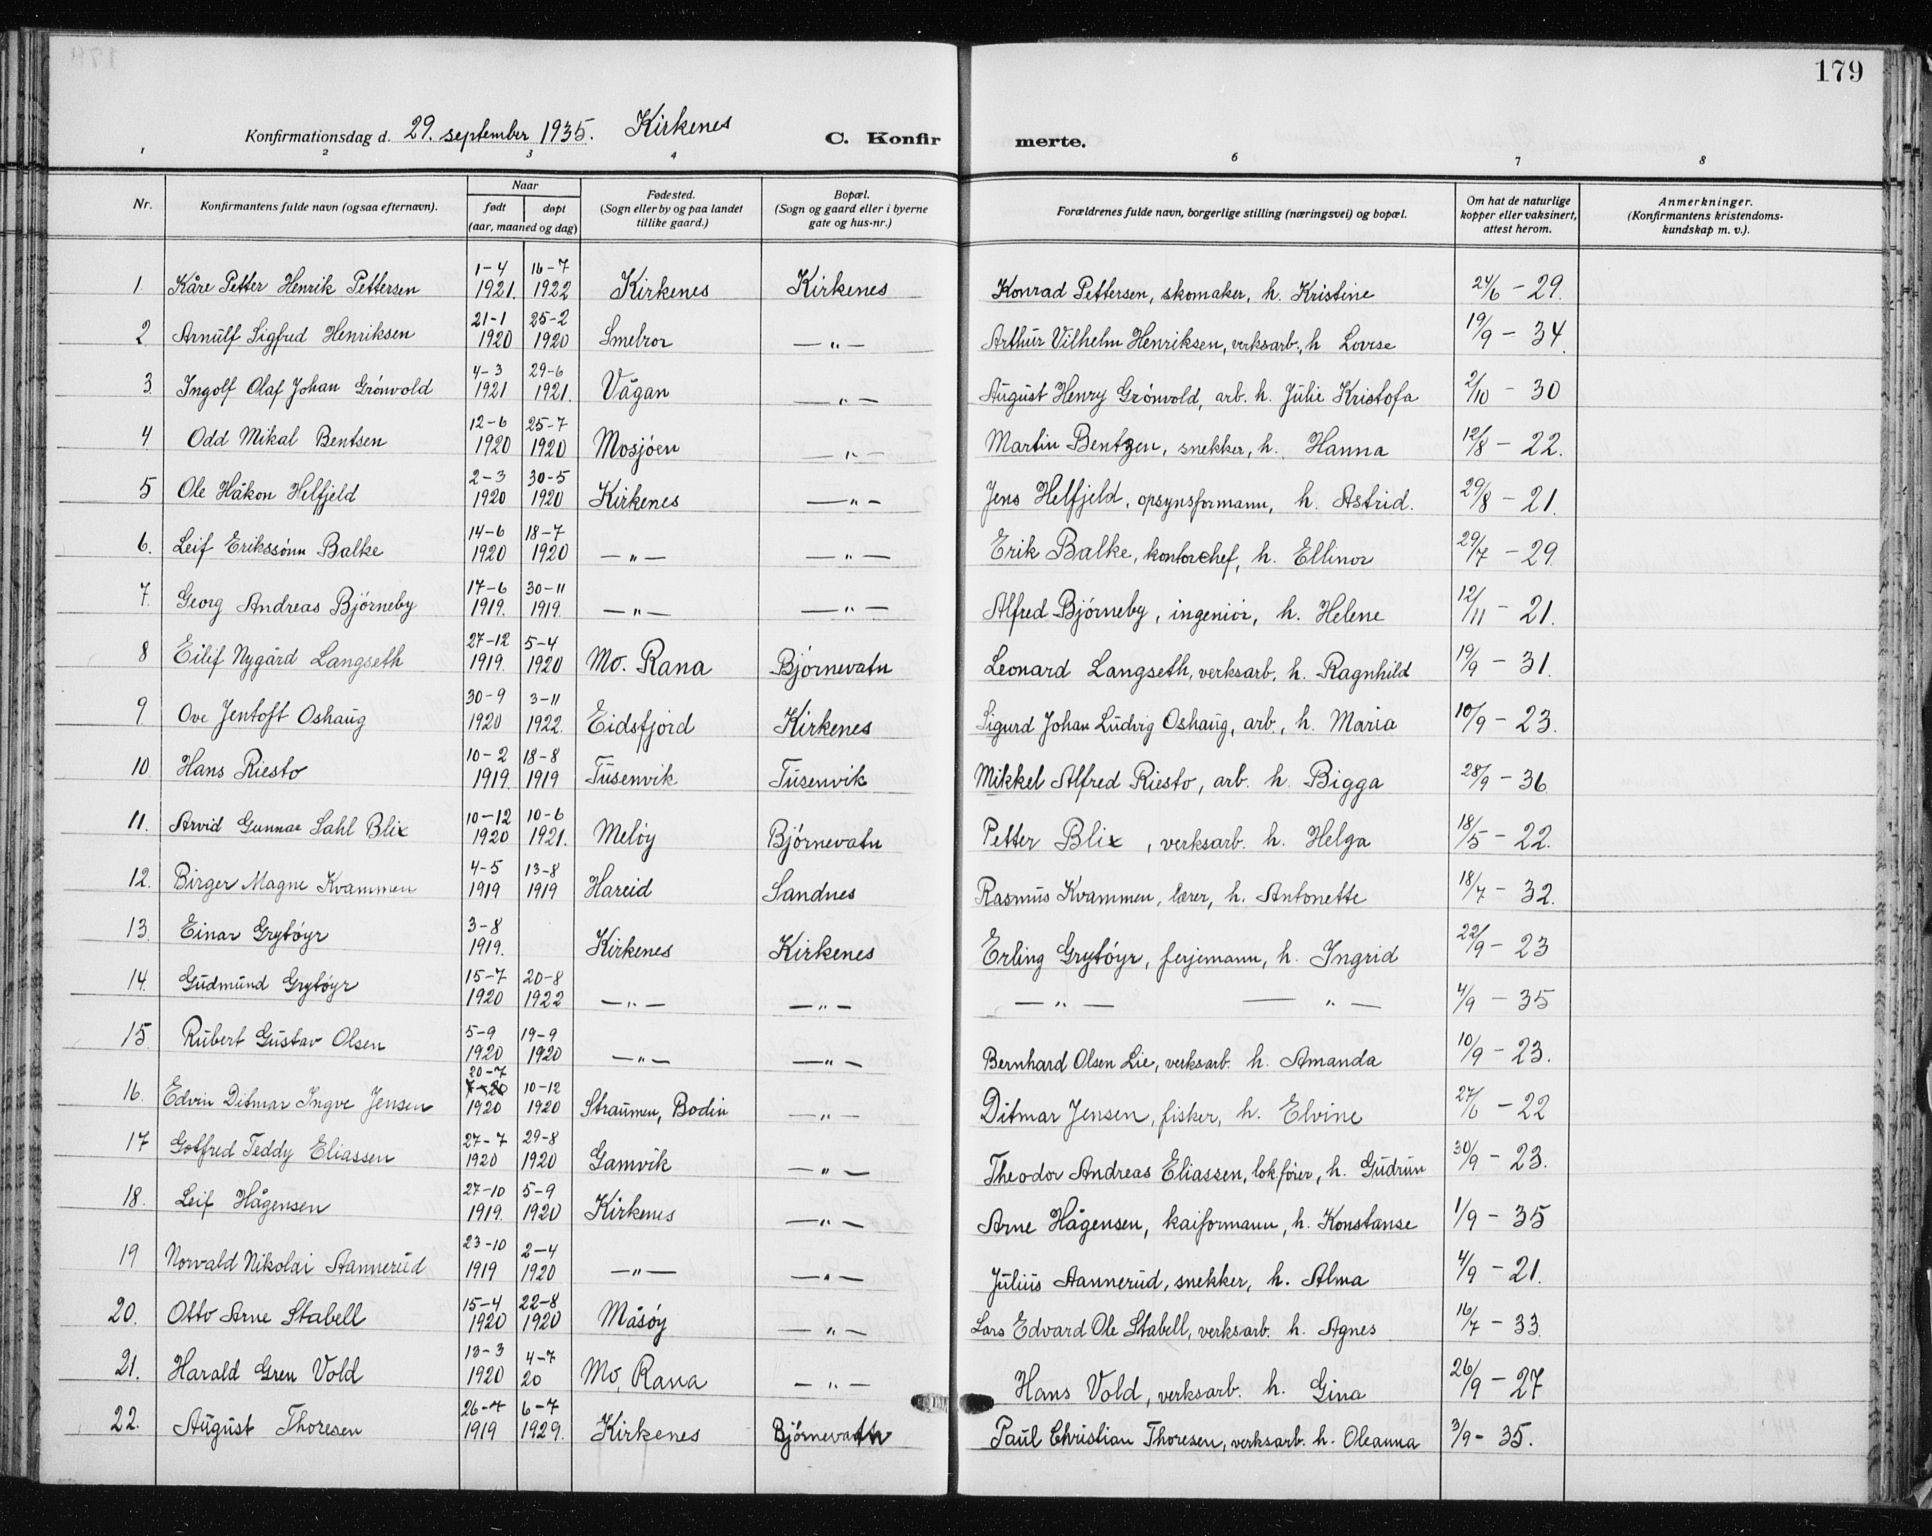 179
Konfirmationsdag d. 29. september 1935. Kirkenes C. Konfirmerte.
1 2 3 4 6 7 8
Nr. Konfirmantens fulde navn (ogsaa efternavn). Naar født døpt (aar, maaned og dag) Fødested. (Sogn eller by og paa landet tillike gaard.) Bopæl. (Sogn og gaard eller i byerne gate og hus-nr.) Forældrenes fulde navn, borgerlige stilling (næringsvei) og bopæl. Om hat de naturlige kopper eller vaksinert, attest herom. Anmerkninger. (Konfirmantens kristendomskundskap m. v.).
1. Kåre Petter Henrik Pettersen 1-4 1921. 16-7 1922 Kirkenes Kirkenes Konrad Pettersen, skomaker, h. Kristine 24/6 - 29.
2 Arnulf Sigfred Henriksen 21-1 1920 25-2 1920 Smelror —"— Arthur Vilhelm Henriksen, verksarb., h Lovise 19/9 - 34.
3. Ingolf Olaf Johan Grönvold 4-3 1921 29-6 1921. Vågan —"— August Henry Grönvold, arb. h. Julie Kristofa 2/10 - 30
4 Odd Mikal Bentsen 12-6 1920 25-7 1920 Mosjöen —"— Martin Bentzen, snekker, h. Hanna 12/8 - 22.
5 Ole Håkon Helfjeld 2-3 1920 30-5 1920 Kirkenes —"— Jens Helfjeld, opsynsformann, h. Astrid. 29/8 - 21.
6. Leif Erikssönn Balke 14-6 1920 18-7 1920 —"— —"— Erik Balke, kontorchef, h. Ellinor 29/7 - 29.
7. Georg Andreas Björneby 17-6 1919. 30-11 1919. —"— —"— Alfred Björneby, ingeniör, h. Helene 12/11 - 21.
8 Eilif Nygård Langseth 27-12 1919. 5-4 1920 Mo. Rana Björnevatn Leonard Langseth, verksarb, h. Ragnhild 19/9 - 31.
9 Ove Jentoft Oshaug 30-9 1920 3-11 1922. Eidsfjord Kirkenes Sigurd Johan Ludvig Oshaug, arb., h. Maria 10/9 - 23.
10 Hans Riesto 10-2 1919. 18-8 1919 Tusenvik Tusenvik Mikkel Alfred Riesto, arb. h. Bigga 28/9 - 36
11. Arvid Gunnar Sahl Blix 10-12 1920 10-6 1921. Melöy Björnevatn Petter Blix, verksarb. h. Helga 18/5 - 22.
12. Birger Magne Kvammen 4-5 1919 13-8 1919 Hareid Sandnes Rasmus Kvammen, lærer, h. Antonette 18/7 - 32.
13. Einar Grytöyr 3-8 1919. Kirkenes Kirkenes Erling Grytöyr, ferjemann, h. Ingrid 22/9 - 23
14. Gudmund Grytöyr 15-7 1920 20-8 1922 —"— —"— —"— —"— 4/9 - 35
15. Rubert Gustav Olsen 5-9 1920 19-9 1920 —"— —"— Bernhard Olsen Lie, verksarb. h. Amanda 10/9 - 23.
16. Edvin Ditmar Ingve Jensen 20-7 1920 10-12 1920 Straumen, Bodin —"— Ditmar Jensen, fisker, h. Elvine 27/6 - 22
17 Gotfred Teddy Eliassen 27-7 1920 29-8 1920 Gamvik —"— Theodor Andreas Eliassen, lok.förer, h. Gudrun 30/9 - 23.
18. Leif Hågensen 27-10 1919. 5-9 1920 Kirkenes —"— Arne Hågensen, kaiformann, h. Konstanse 1/9 - 35
19 Norvald Nikolai Aannerud 23-10 1919 2-4 1920 —"— —"— Julius Aannerud, snekker, h. Alma 4/9 - 21.
20. Otto Arne Stabell 15-4 1920 22-8 1920 Måsöy —"— Lars Edvard Ole Stabell, verksarb. h. Agnes 16/7 - 33.
21. Harald Gren Vold 13-3 1920 4-7 20 Mo, Rana —"— Hans Vold, verksarb. h. Gina 26/9 - 27
22. August Thoresen 26-7 1919 6-7 1929. Kirkenes Björnevatn Paul Christian Thoresen, verksarb. h. Oleanna 3/9 - 35.